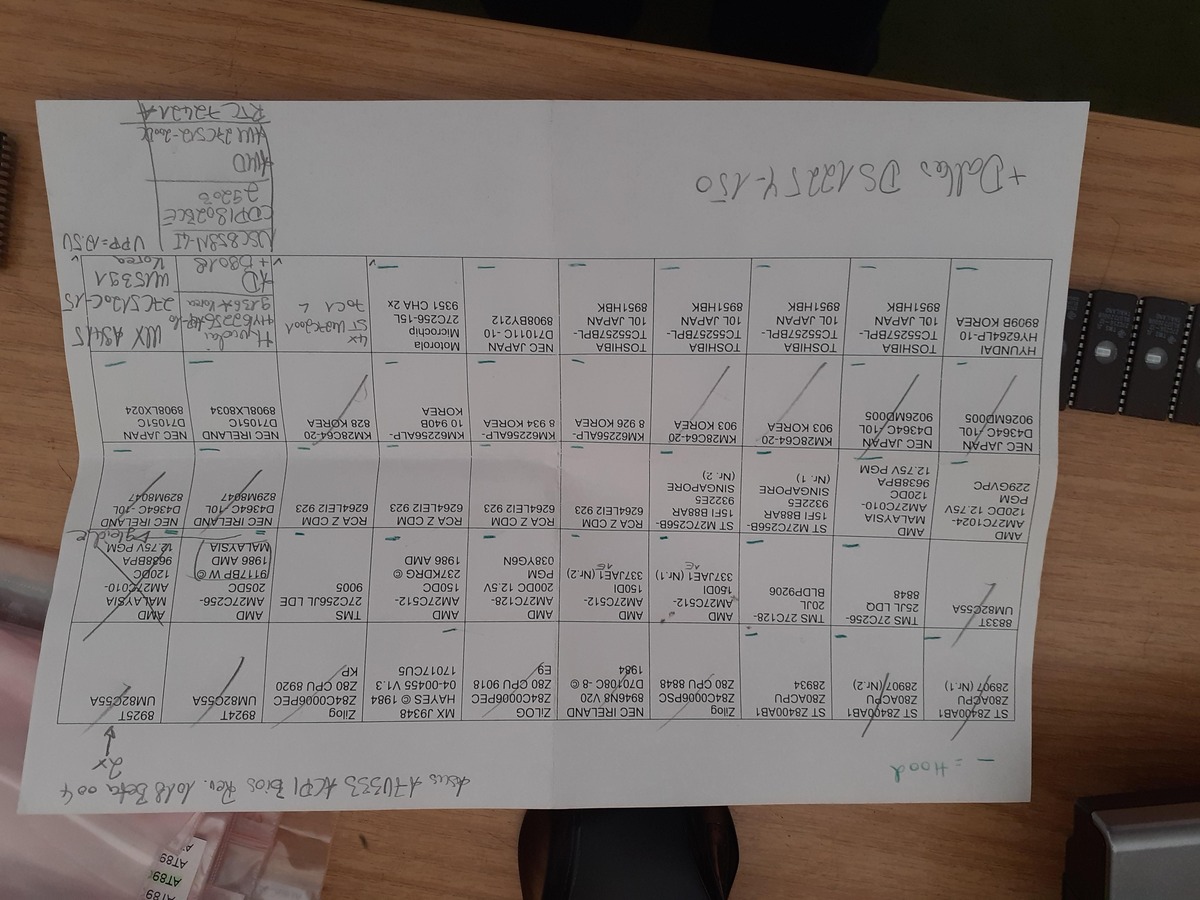 — = Hood
Asus A7V333 ACPI Bios Rev. 1018 Beta 004
2x
ST Z8400AB1
Z80ACPU
28907 (Nr.1)
ST Z8400AB1
Z80ACPU
28907 (Nr.2)
ST Z8400AB1
Z80ACPU
28934
Zilog
Z84C0006PSC
Z80 CPU 8848
NEC IRELAND
8946N8 V20
D70108C -8 ©
1984
ZiLOG
Z84C0006PEC
Z80 CPU 9018
E9
MX J9348
HAYES © 1984
04-00455 V1.3
17017CU5
Zilog
Z84C0006PEC
Z80 CPU 8920
KP
8924T
UM82C55A
8925T
UM82C55A
8833T
UM82C55A
TMS 27C256-
25JL LDQ
8848
TMS 27C128-
20JL
BLDP9206
AMD
AM27C512-
150DI
337JAE1 (Nr.1)
AMD
AM27C512-
150DI
337JAE1 (Nr.2)
AMD
AM27C128-
200DC 12.5V
PGM
038YG6N
AMD
AM27C512-
150DC
237KDRG ©
1986 AMD
TMS
27C256JL LDE
9005
AMD
AM27C256-
205DC
9117BP W ©
1986 AMD
MALAYSIA
AMD
MALAYSIA
AM27C010-
120DC
9638BPA
12.75V PGM
AMD
AM27C1024-
120DC 12.75V
PGM
229GVPC
AMD
MALAYSIA
AM27C010-
120DC
9638BPA
12.75V PGM
ST M27C256B-
15FI B88AR
9322E5
SINGAPORE
(Nr. 1)
ST M27C256B-
15FI B88AR
9322E5
SINGAPORE
(Nr. 2)
RCA Z CDM
6264LEI2 923
RCA Z CDM
6264LEI2 923
RCA Z CDM
6264LEI2 923
RCA Z CDM
6264LEI2 923
NEC IRELAND
D4364C 10L
829M8047
NEC IRELAND
D4364C -10L
829M8047
NEC JAPAN
D4364C 10L
9026MD005
NEC JAPAN
D4364C 10L
9026MD005
KM28C64-20
903 KOREA
KM28C64-20
903 KOREA
KM62256ALP-
8 926 KOREA
KM62256ALP-
8 934 KOREA
KM62256ALP-
10 940B
KOREA
KM28C64-20
828 KOREA
NEC IRELAND
D71051C
8908LX8034
NEC JAPAN
D71051C
8908LX024
HYUNDAI
HY6264LP-10
8909B KOREA
TOSHIBA
TC55257BPL-
10L JAPAN
8951HBK
TOSHIBA
TC55257BPL-
10L JAPAN
8951HBK
TOSHIBA
TC55257BPL-
10L JAPAN
8951HBK
TOSHIBA
TC55257BPL-
10L JAPAN
8951HBK
NEC JAPAN
D71011C -10
8908BY212
Motorola
Microchip
27C256-15L
9351 CHA 2x
4x
Korea
VPP=12.5V
NSC858N-4I
AMD
RTC 72421A
+Dallas DS1225Y-150
AT89
AT89
AT89